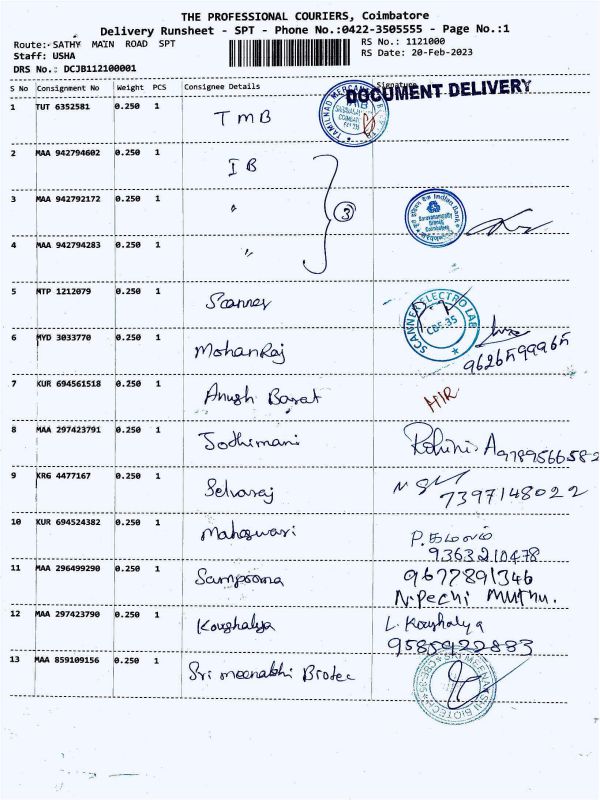 THE PROFESSIONAL COURIERS, Coimbatore
Delivery Runsheet - SPT - Phone No.:0422-3505555 - Page No.:1
Route: SATHY MAIN ROAD SPT
RS No.: 1121000
Staff: USHA
RS Date: 20-Feb-2023
DRS No.: DCJB112100001
S No Consignment No Weight PCS Consignee Details Signature
DOCUMENT DELIVERY
1 TUT 6352581 0.250 1 TMB
2 MAA 942794602 0.250 1 IB
3 MAA 942792172 0.250 1 " 3
4 MAA 942794283 0.250 1 "
5 MTP 1212079 0.250 1 Scanner SCANNER ELECTRO LAB CBE-35
6 MYD 3033770 0.250 1 MohanRaj
7 KUR 694561518 0.250 1 Anush Barat
8 MAA 297423791 0.250 1 Jothimani Rohini. A 9789566582
9 KRG 4477167 0.250 1 Selvaraj 7397148022
10 KUR 694524382 0.250 1 Maheswari
9363210478
11 MAA 296499290 0.250 1 9677891346
N. Pechi Muthu.
12 MAA 297423790 0.250 1 Koushalya L. Koushalya
9585922883
13 MAA 859109156 0.250 1 Sri meenakshi Biotec